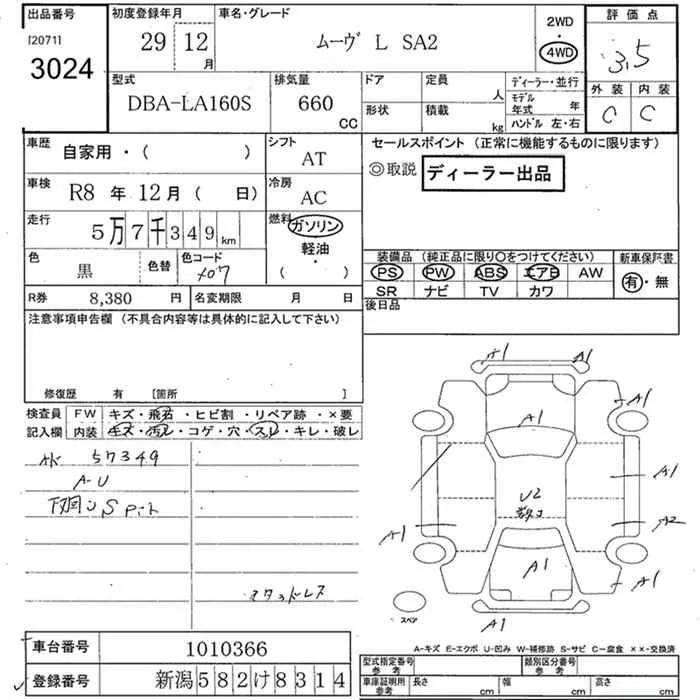 出品番号
[20711]
3024
初度登録年月
29 12月
車名・グレード
ムーヴ L SA2
2WD
・
4WD
評価点
3.5
外装 内装
C C
型式
DBA-LA160S
排気量
660
CC
ドア
形状
定員
人
積載
kg
ディーラー・並行
モデル
年式 年
ハンドル 左・右
車歴 自家用・( )
シフト
AT
車検 R8 年 12 月 ( 日)
冷房
AC
走行 5万7千349 km
燃料 ガソリン
軽油
・
( )
色
黒
色替
色コード
X07
R券 8,380 円
名変期限 月 日
セールスポイント (正常に機能するものに限ります)
◎取説 ディーラー出品
装備品 (純正品に限り○をつけてください)
PS PW ABS エアB AW
SR ナビ TV カワ
新車保証書
有・無
後日品
注意事項申告欄 (不具合内容等は具体的に記入して下さい)
修復歴 有 [箇所 ]
検査員
記入欄
FW キズ・飛石・ヒビ割・リペア跡・×要
内装 キズ・汚レ・コゲ・穴・スレ・キレ・破レ
57349
A-U
スタッドレス
A1 A1
A1
A1
A1
U2
A2
A1
A1
A1
A1
スペア
A-キズ E-エクボ U-凹み W-補修跡 S-サビ C-腐食 ××-交換済
車台番号 1010366
登録番号 新潟582け8314
型式指定番号
参考
類別区分番号
参考
車庫証明用
参考
長さ cm
幅 cm
高さ cm